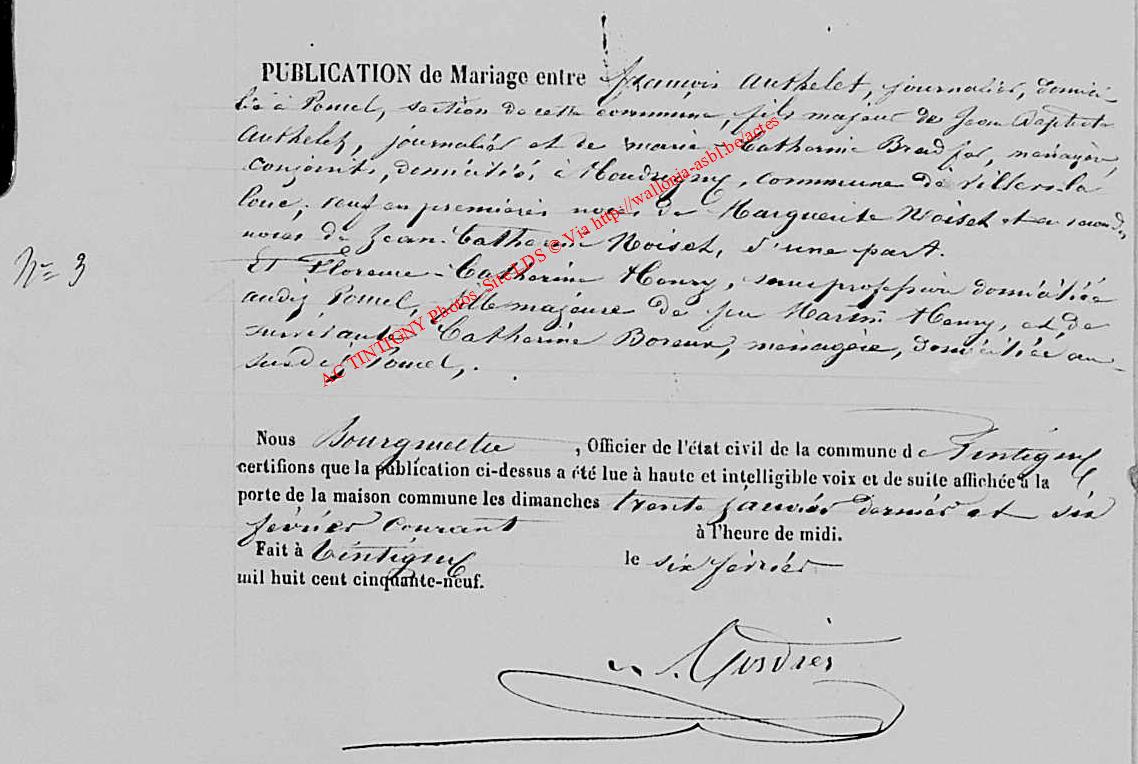 PUBLICATION de Mariage entre françois Authelet, journalier, domici
lié à Poncel, section de cette commune, fils majeur de Jean Baptiste
Authelet, journalier et de marie-Catherine, ménagère,
conjoints, domiciliés à Houdrigny, commune de Villers-la
loue, veuf en premières noces de Marguerite Noiset et en secondes
noces de Jean-Catherine Noiset, d'une part.
N° 3
Et Florence-Catherine Henry, sans profession domiciliée
audit Poncel, fille majeure de feu Martin Henry, et de
survivante Catherine Boreux, ménagère, domiciliée au
susdit Poncel,.
AC TINTIGNY Photos Site LDS © Via http://wallonia-asbl.be/actes
Nous Bourgmestre, Officier de l'état civil de la commune de Tintigny
certifions que la publication ci-dessus a été lue à haute et intelligible voix et de suite affichée à la
porte de la maison commune les dimanches trente janvier dernier et six
février courant à l'heure de midi.
Fait à Tintigny le six février
mil huit cent cinquante-neuf.